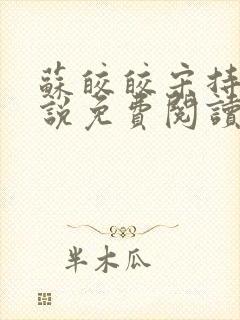 蘇皎皎宋持
說免費閱讀
半木瓜